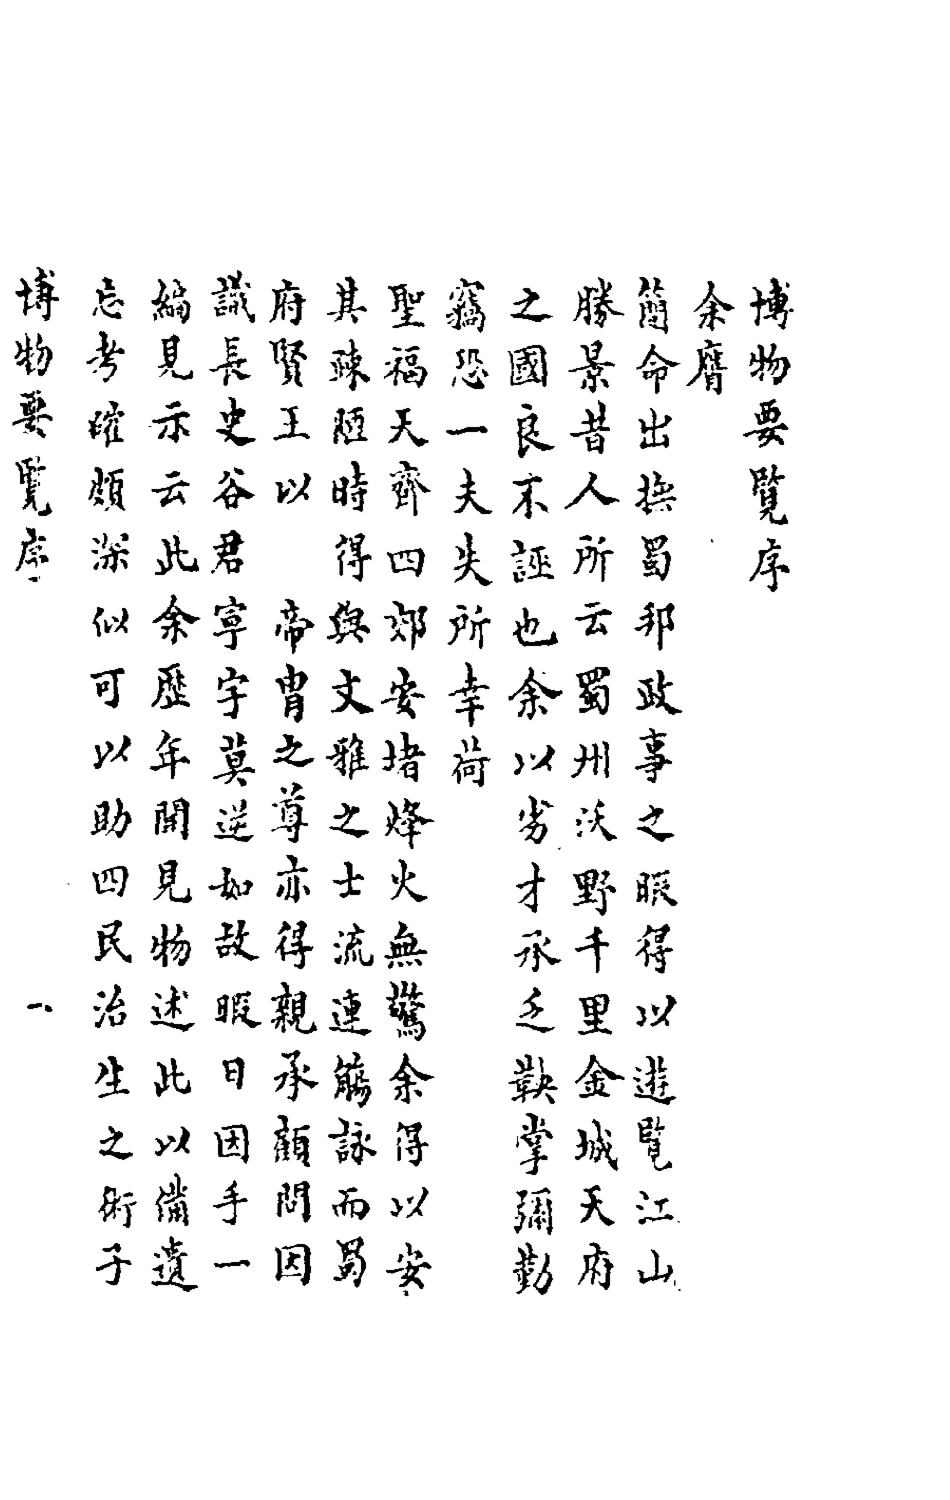 博物要覽序
余膺
簡命出撫蜀邦政事之暇得以遊覽江山
勝景昔人所云蜀州沃野千里金城天府
之國良不誣也余以劣才承乏鞅掌彌勤
竊恐一夫失所幸荷
聖福天齊四郊安堵烽火無驚余得以安
其疎陋時得與文雅之士流連觴詠而蜀
府賢王以帝胄之尊亦得親承顧問因
識長史谷君寧宇莫逆如故暇日因手一
編見示云此余歷年聞見物述此以備遺
忘考確頗深似可以助四民治生之術子
博物要覽序 一